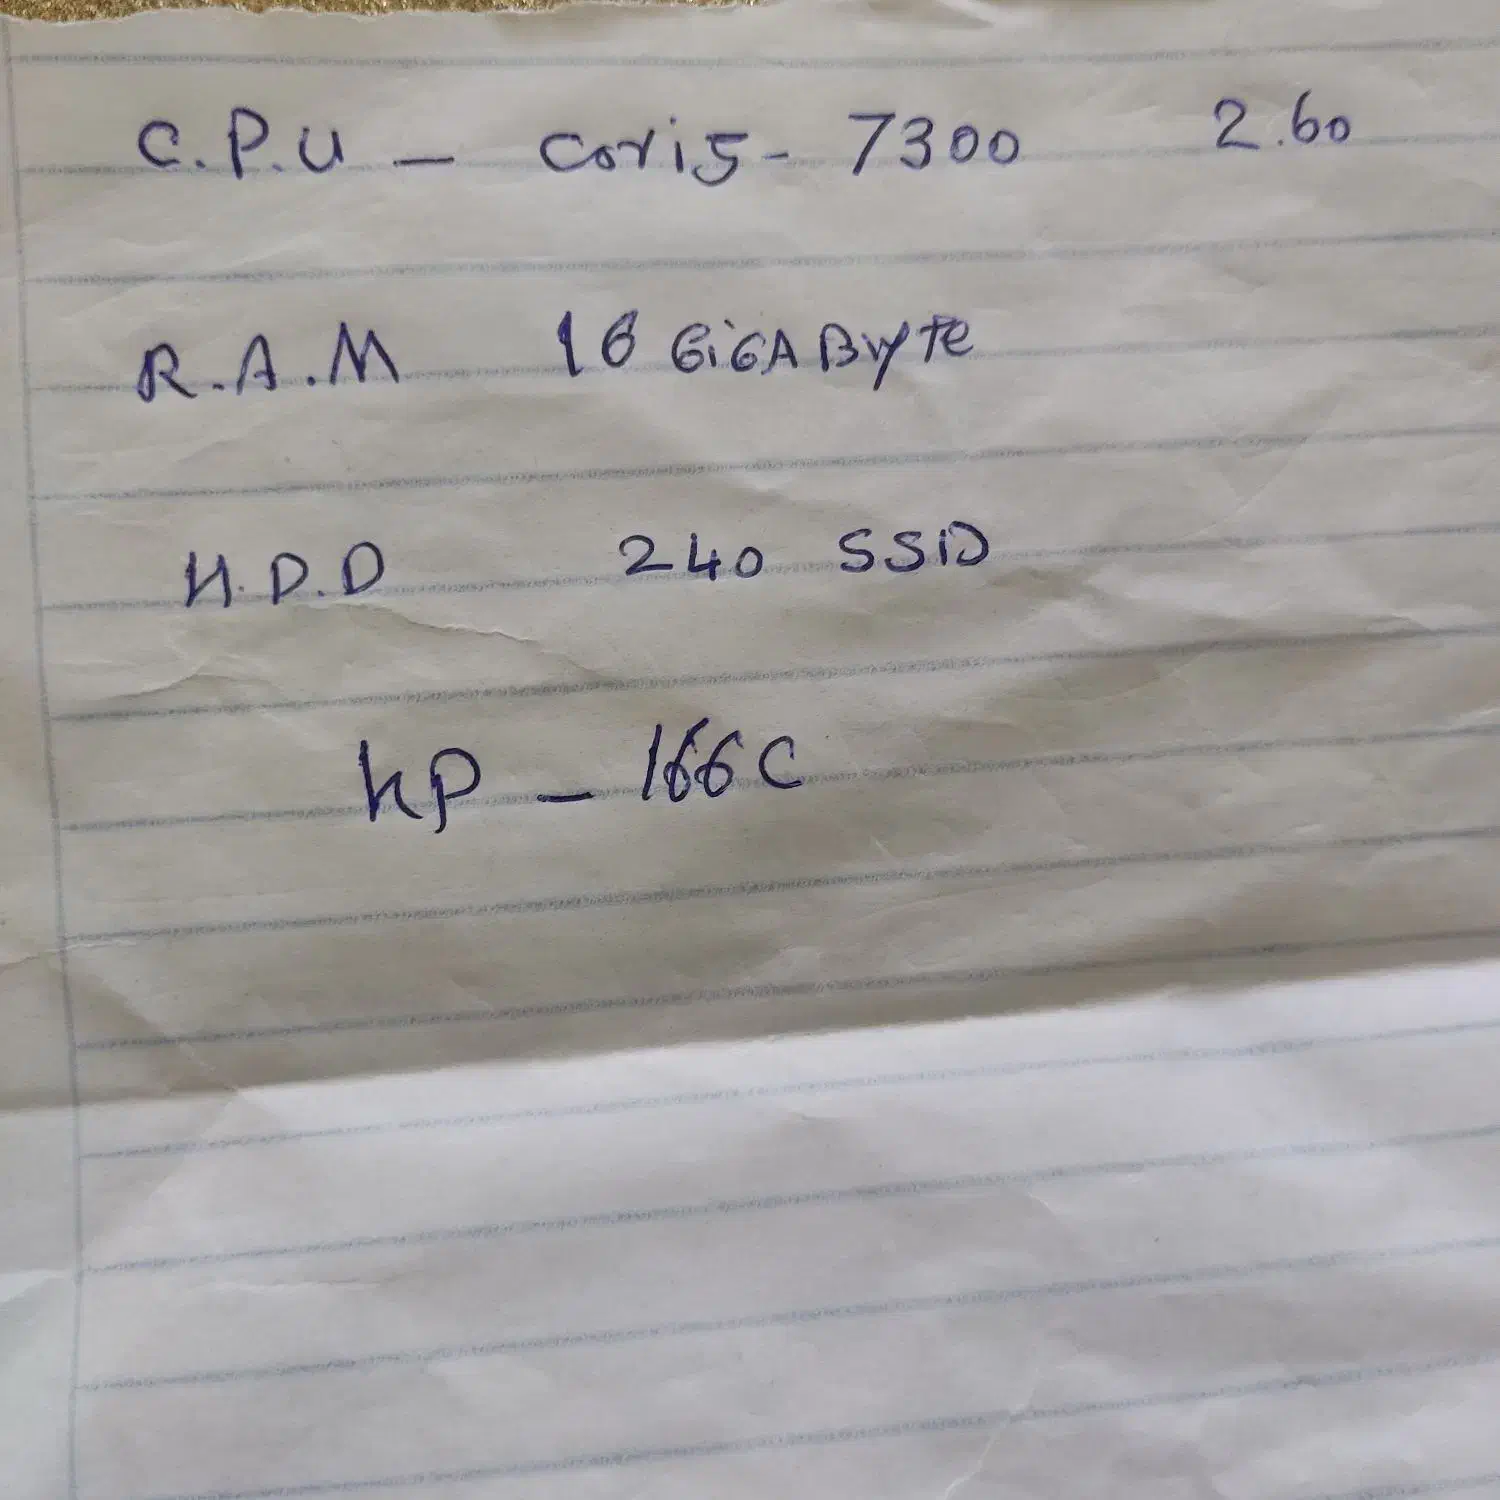 C.P.U - Cori5- 7300 2.60
R.A.M 16 GiGABыTe
H.D.D 240 SSD
hp - 166C